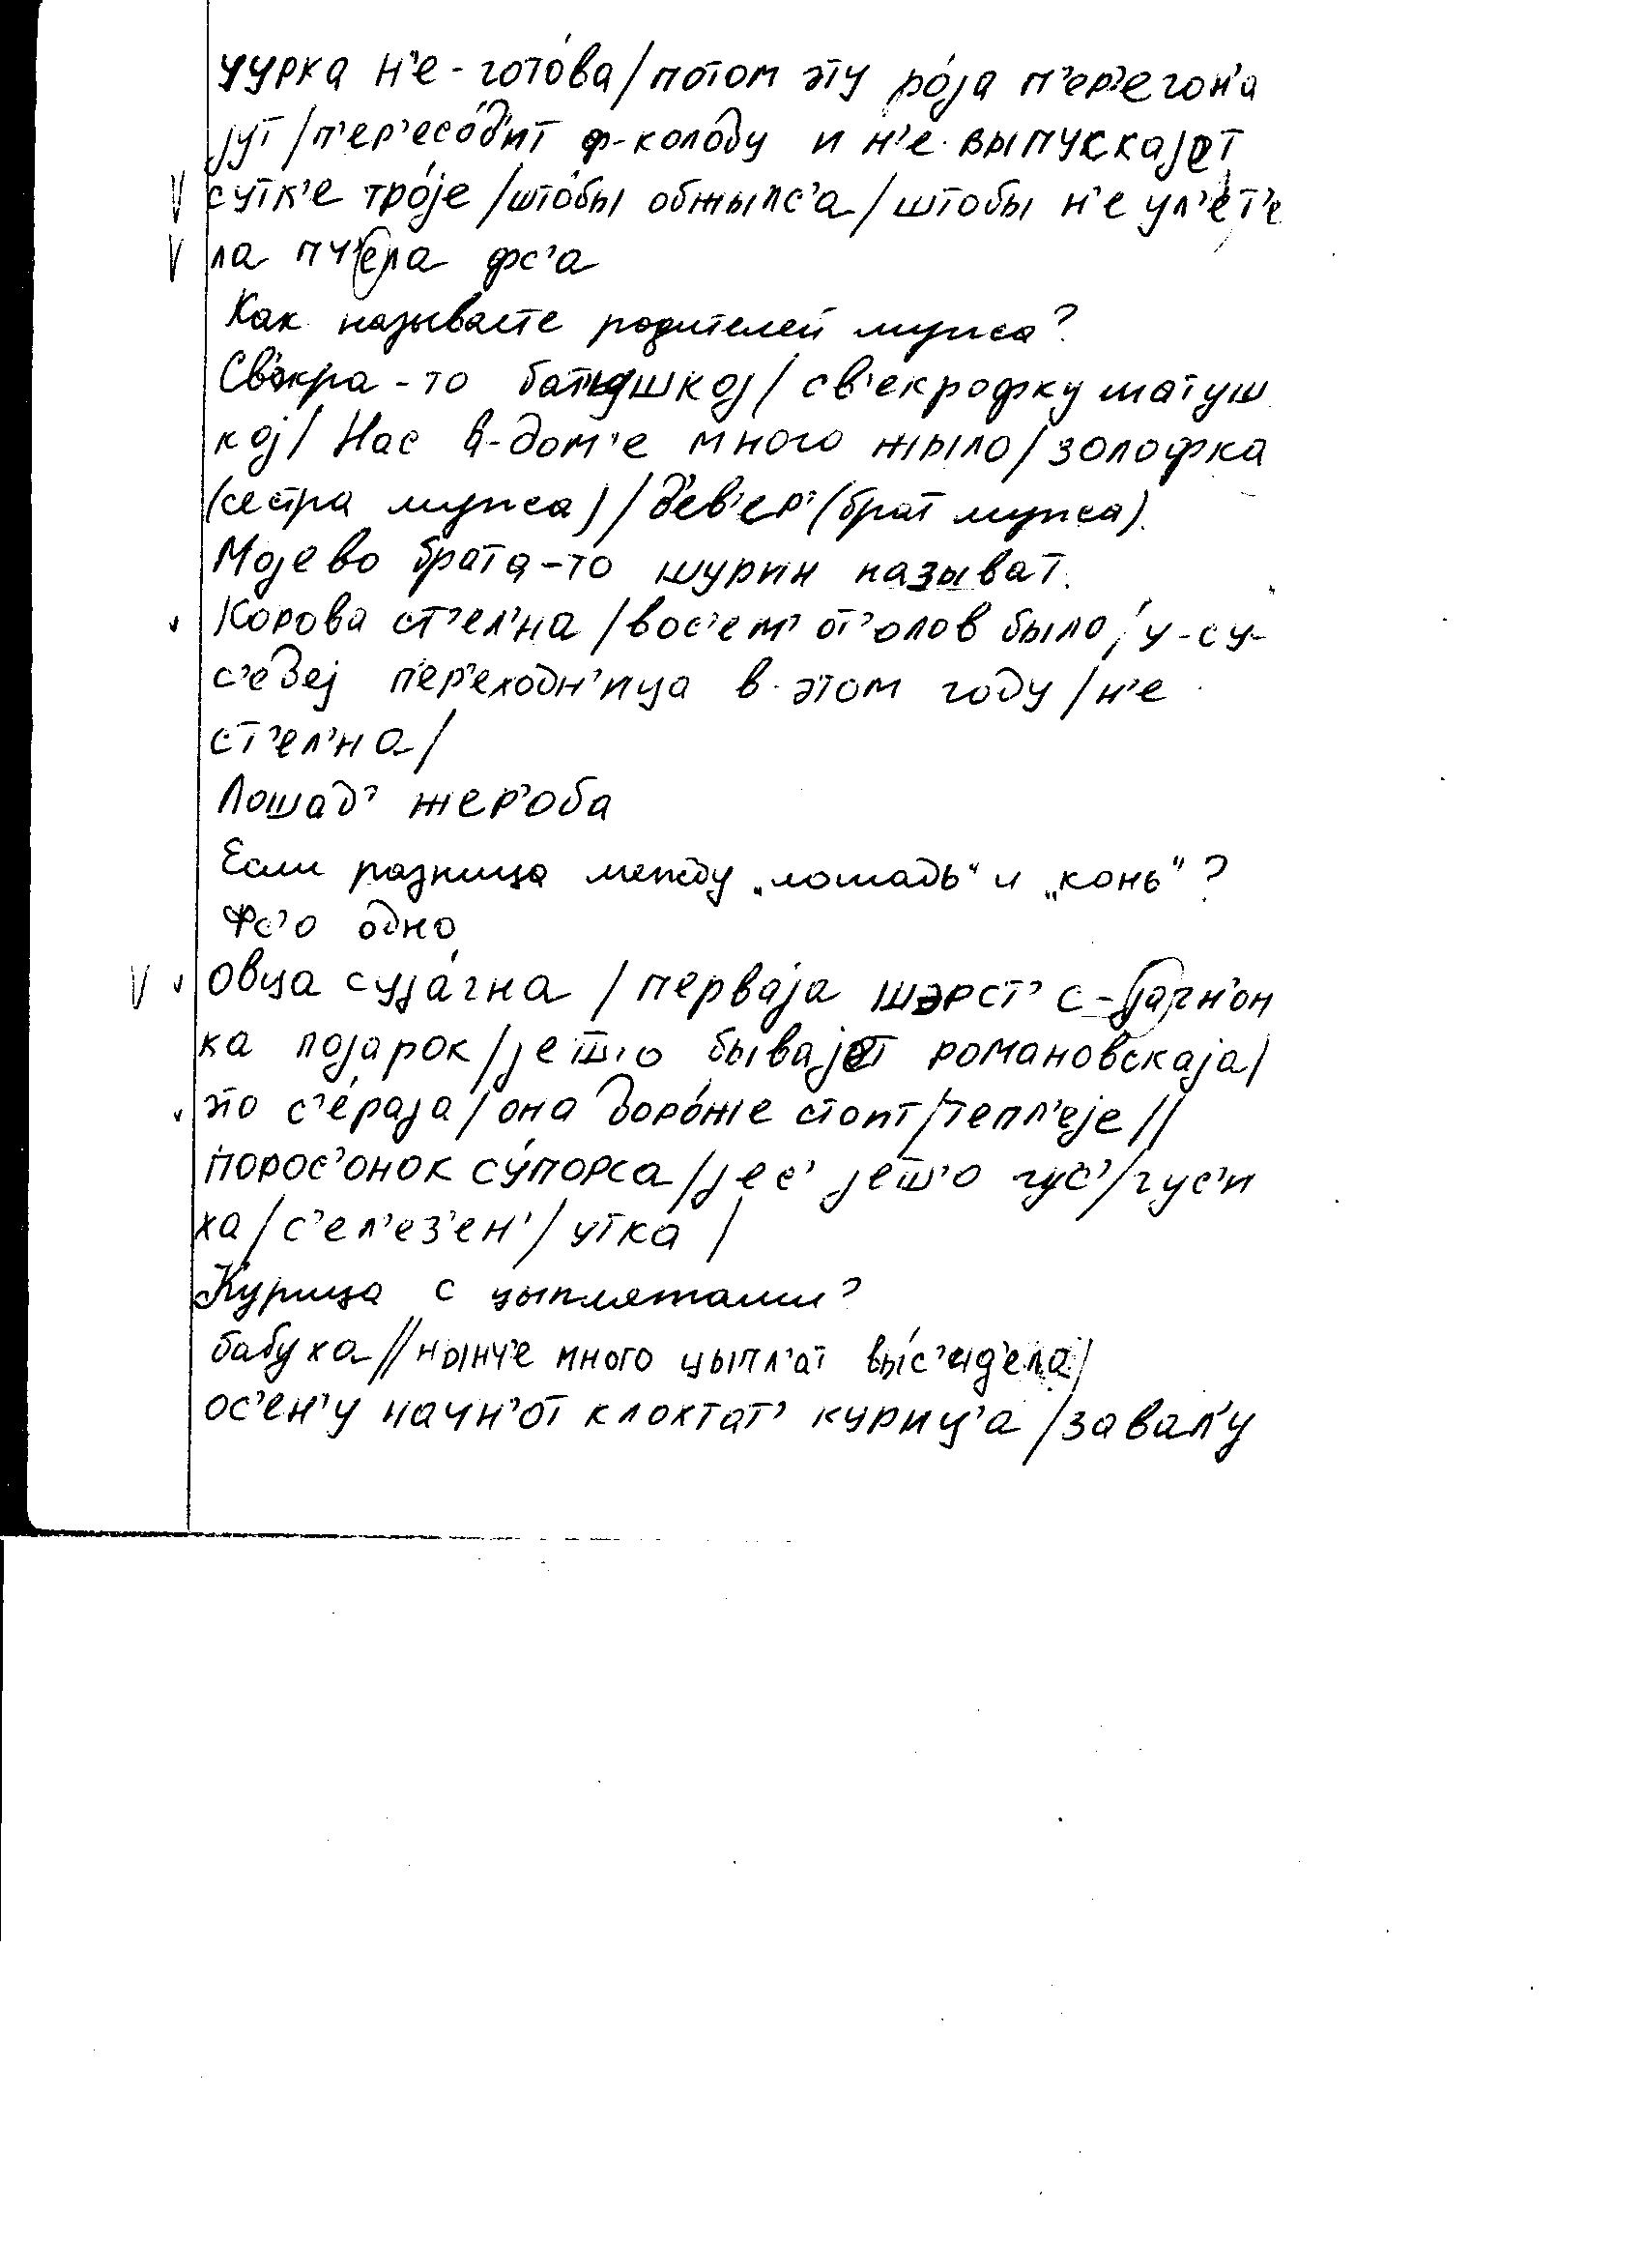 чурка н'е-гото́ва/потом эту ро́jа п'ер'егон'а
jут/п'ер'есо́д'ит ф-коло́ду и н'е выпускаjет
сутк'е тро́jе/што́бы обжылс'а/штобы н'е ул'ет'е
ла пч'ела фс'а
Как называете родителей мужа?
Св'окра-то бат'ушкоj/св'екрофку матуш
коj/Нас в-дом'е много жыло/золофка
(сестра мужа)/д'ев'ер'(брат мужа).
Моjево брата-то шурин называт.
Корова ст'ел'на/вос'ем' от'олов было/у-су-
с'едеj пер'еходн'ица в этом году/н'е
ст'ел'на/
Лошад' жер'оба
Если разница между „лошадь" и „конь"?
Фс'о одно
Овца суjа́гна/перваjа шэрст' с-jагн'он
ка поjарок/jеш'о бываjет романовскаjа/
это с'е́раjа/она доро́же стоит/тепл'еjе//
порос'онок су́порса/jес' jеш'о гус'/гус'и
ха/с'ел'ез'ен'/утка/
Курица с цыплятами?
бабуха//нынч'е много цыпл'ат вы́с'ид'ела/
ос'ен'у начн'от клохтат' куриц'а/завал'у